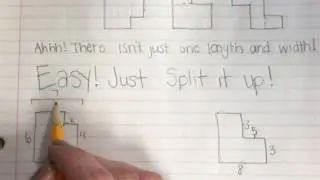 Ahhh! There isn't just one length and width!
Easy! Just Split it up!
7
6 4
3
5
3
8